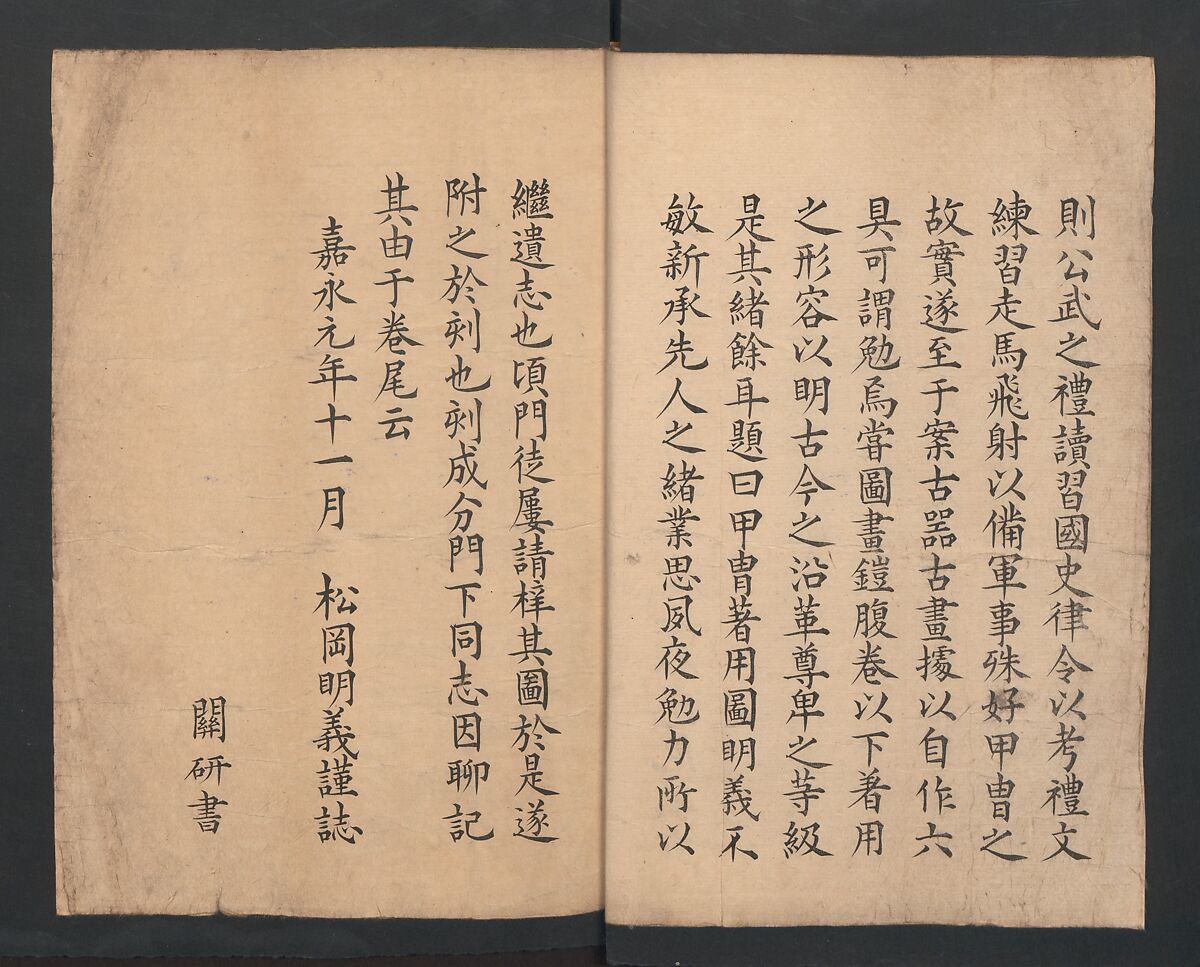 則公武之禮讀習國史律令以考禮文
練習走馬飛射以備軍事殊好甲冑之
故實遂至于案古器古畫據以自作六
具可謂勉焉嘗圖畫鎧腹卷以下著用
之形容以明古今之沿革尊卑之等級
是其緒餘耳題曰甲冑著用圖明義不
敏新承先人之緒業思夙夜勉力所以
繼遺志也頃門徒屢請梓其圖於是遂
附之於刻也刻成分門下同志因聊記
其由于卷尾云
嘉永元年十一月　松岡明義謹誌
關研書